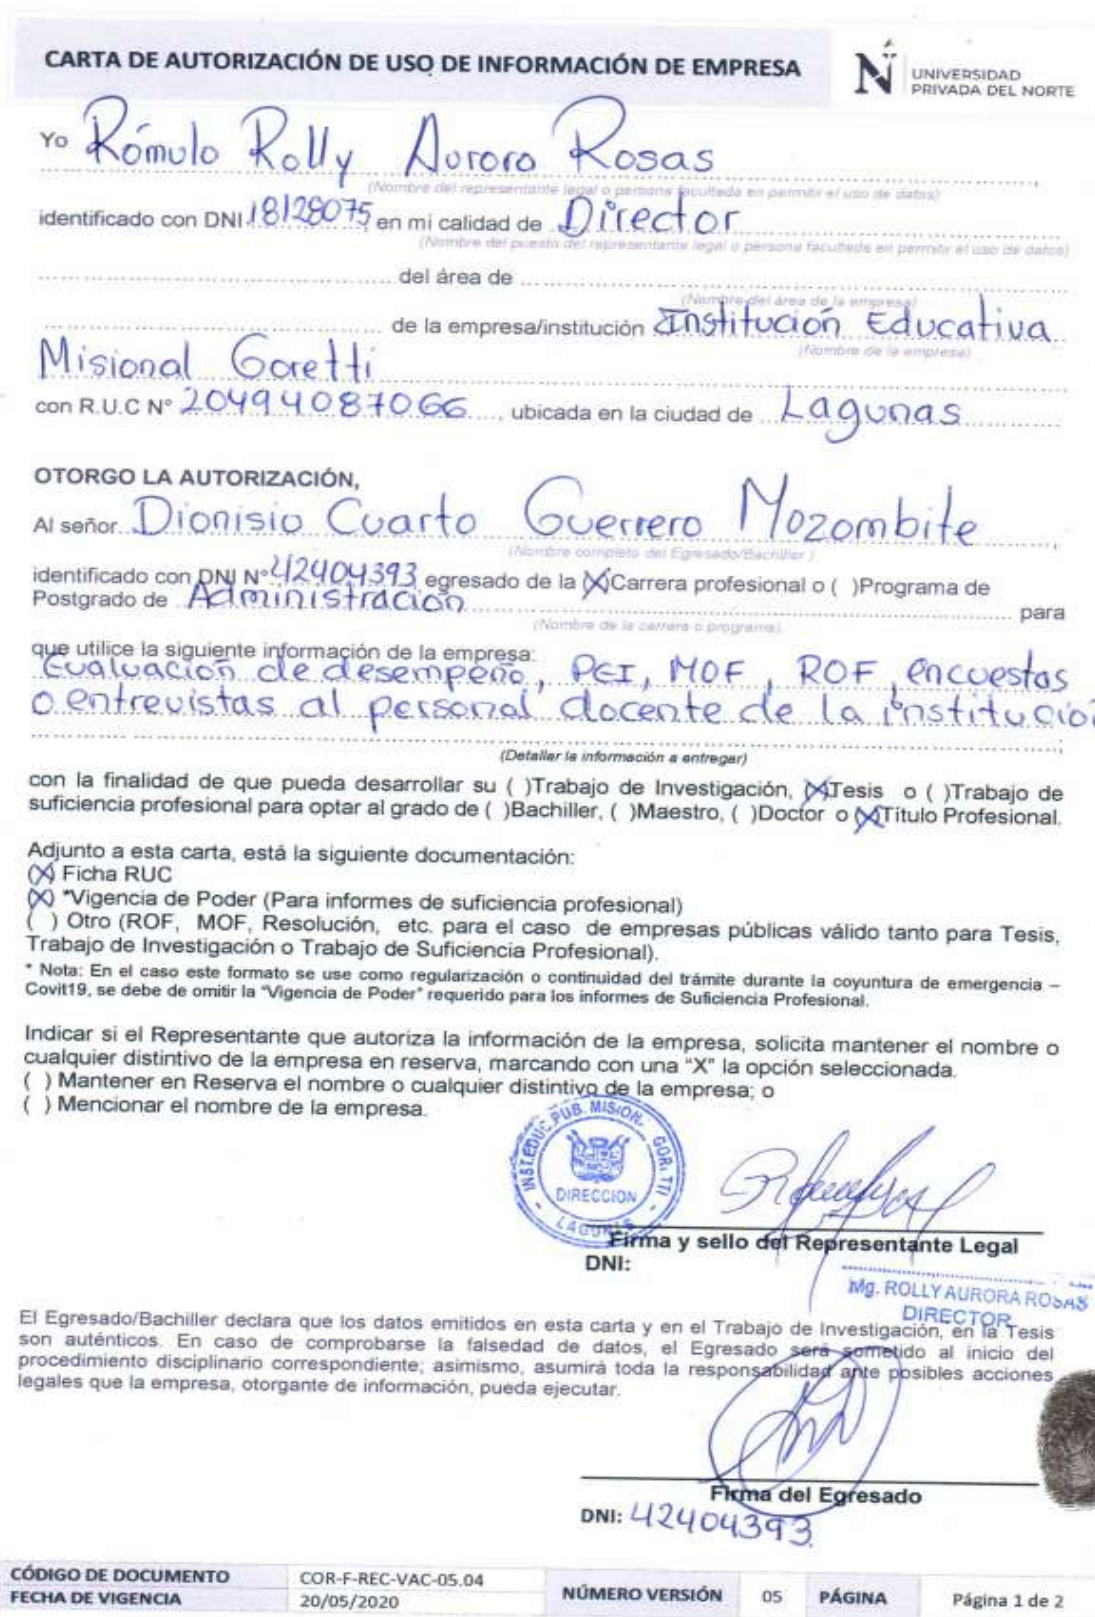 CARTA DE AUTORIZACIÓN DE USO DE INFORMACIÓN DE EMPRESA
UNIVERSIDAD
PRIVADA DEL NORTE
Yo Rómulo Rolly Aurora Rosas
(Nombre del representante legal o persona facultada en permitir el uso de datos)
identificado con DNI 18128075 en mi calidad de Director
(Nombre del puesto del representante legal o persona facultada en permitir el uso de datos)
del área de
(Nombre del área de la empresa)
de la empresa/institución Institución Educativa
(Nombre de la empresa)
Misional Goretti
con R.U.C N° 20494087066, ubicada en la ciudad de Lagunas
OTORGO LA AUTORIZACIÓN,
Al señor Dionisio Cuarto Guerrero Mozombite
(Nombre completo del Egresado/Bachiller)
identificado con DNI N° 42404393 egresado de la (X)Carrera profesional o ( )Programa de
Postgrado de Administración para
(Nombre de la carrera o programa)
que utilice la siguiente información de la empresa:
Evaluación de desempeño, PEI, MOF, ROF, encuestas
o entrevistas al personal docente de la institución
(Detallar la información a entregar)
con la finalidad de que pueda desarrollar su ( )Trabajo de Investigación, (X)Tesis o ( )Trabajo de
suficiencia profesional para optar al grado de ( )Bachiller, ( )Maestro, ( )Doctor o (X)Título Profesional.
Adjunto a esta carta, está la siguiente documentación:
(X) Ficha RUC
(X) *Vigencia de Poder (Para informes de suficiencia profesional)
( ) Otro (ROF, MOF, Resolución, etc. para el caso de empresas públicas válido tanto para Tesis,
Trabajo de Investigación o Trabajo de Suficiencia Profesional).
* Nota: En el caso este formato se use como regularización o continuidad del trámite durante la coyuntura de emergencia –
Covit19, se debe de omitir la "Vigencia de Poder" requerido para los informes de Suficiencia Profesional.
Indicar si el Representante que autoriza la información de la empresa, solicita mantener el nombre o
cualquier distintivo de la empresa en reserva, marcando con una "X" la opción seleccionada.
( ) Mantener en Reserva el nombre o cualquier distintivo de la empresa; o
( ) Mencionar el nombre de la empresa.
INST.EDUC.PUB. MISION. GOR. TTI
DIRECCION
LAGUNAS
Firma y sello del Representante Legal
DNI:
Mg. ROLLY AURORA ROSAS
DIRECTOR
El Egresado/Bachiller declara que los datos emitidos en esta carta y en el Trabajo de Investigación, en la Tesis
son auténticos. En caso de comprobarse la falsedad de datos, el Egresado será sometido al inicio del
procedimiento disciplinario correspondiente; asimismo, asumirá toda la responsabilidad ante posibles acciones
legales que la empresa, otorgante de información, pueda ejecutar.
Firma del Egresado
DNI: 42404393
CÓDIGO DE DOCUMENTO COR-F-REC-VAC-05.04 NÚMERO VERSIÓN 05 PÁGINA Página 1 de 2
FECHA DE VIGENCIA 20/05/2020